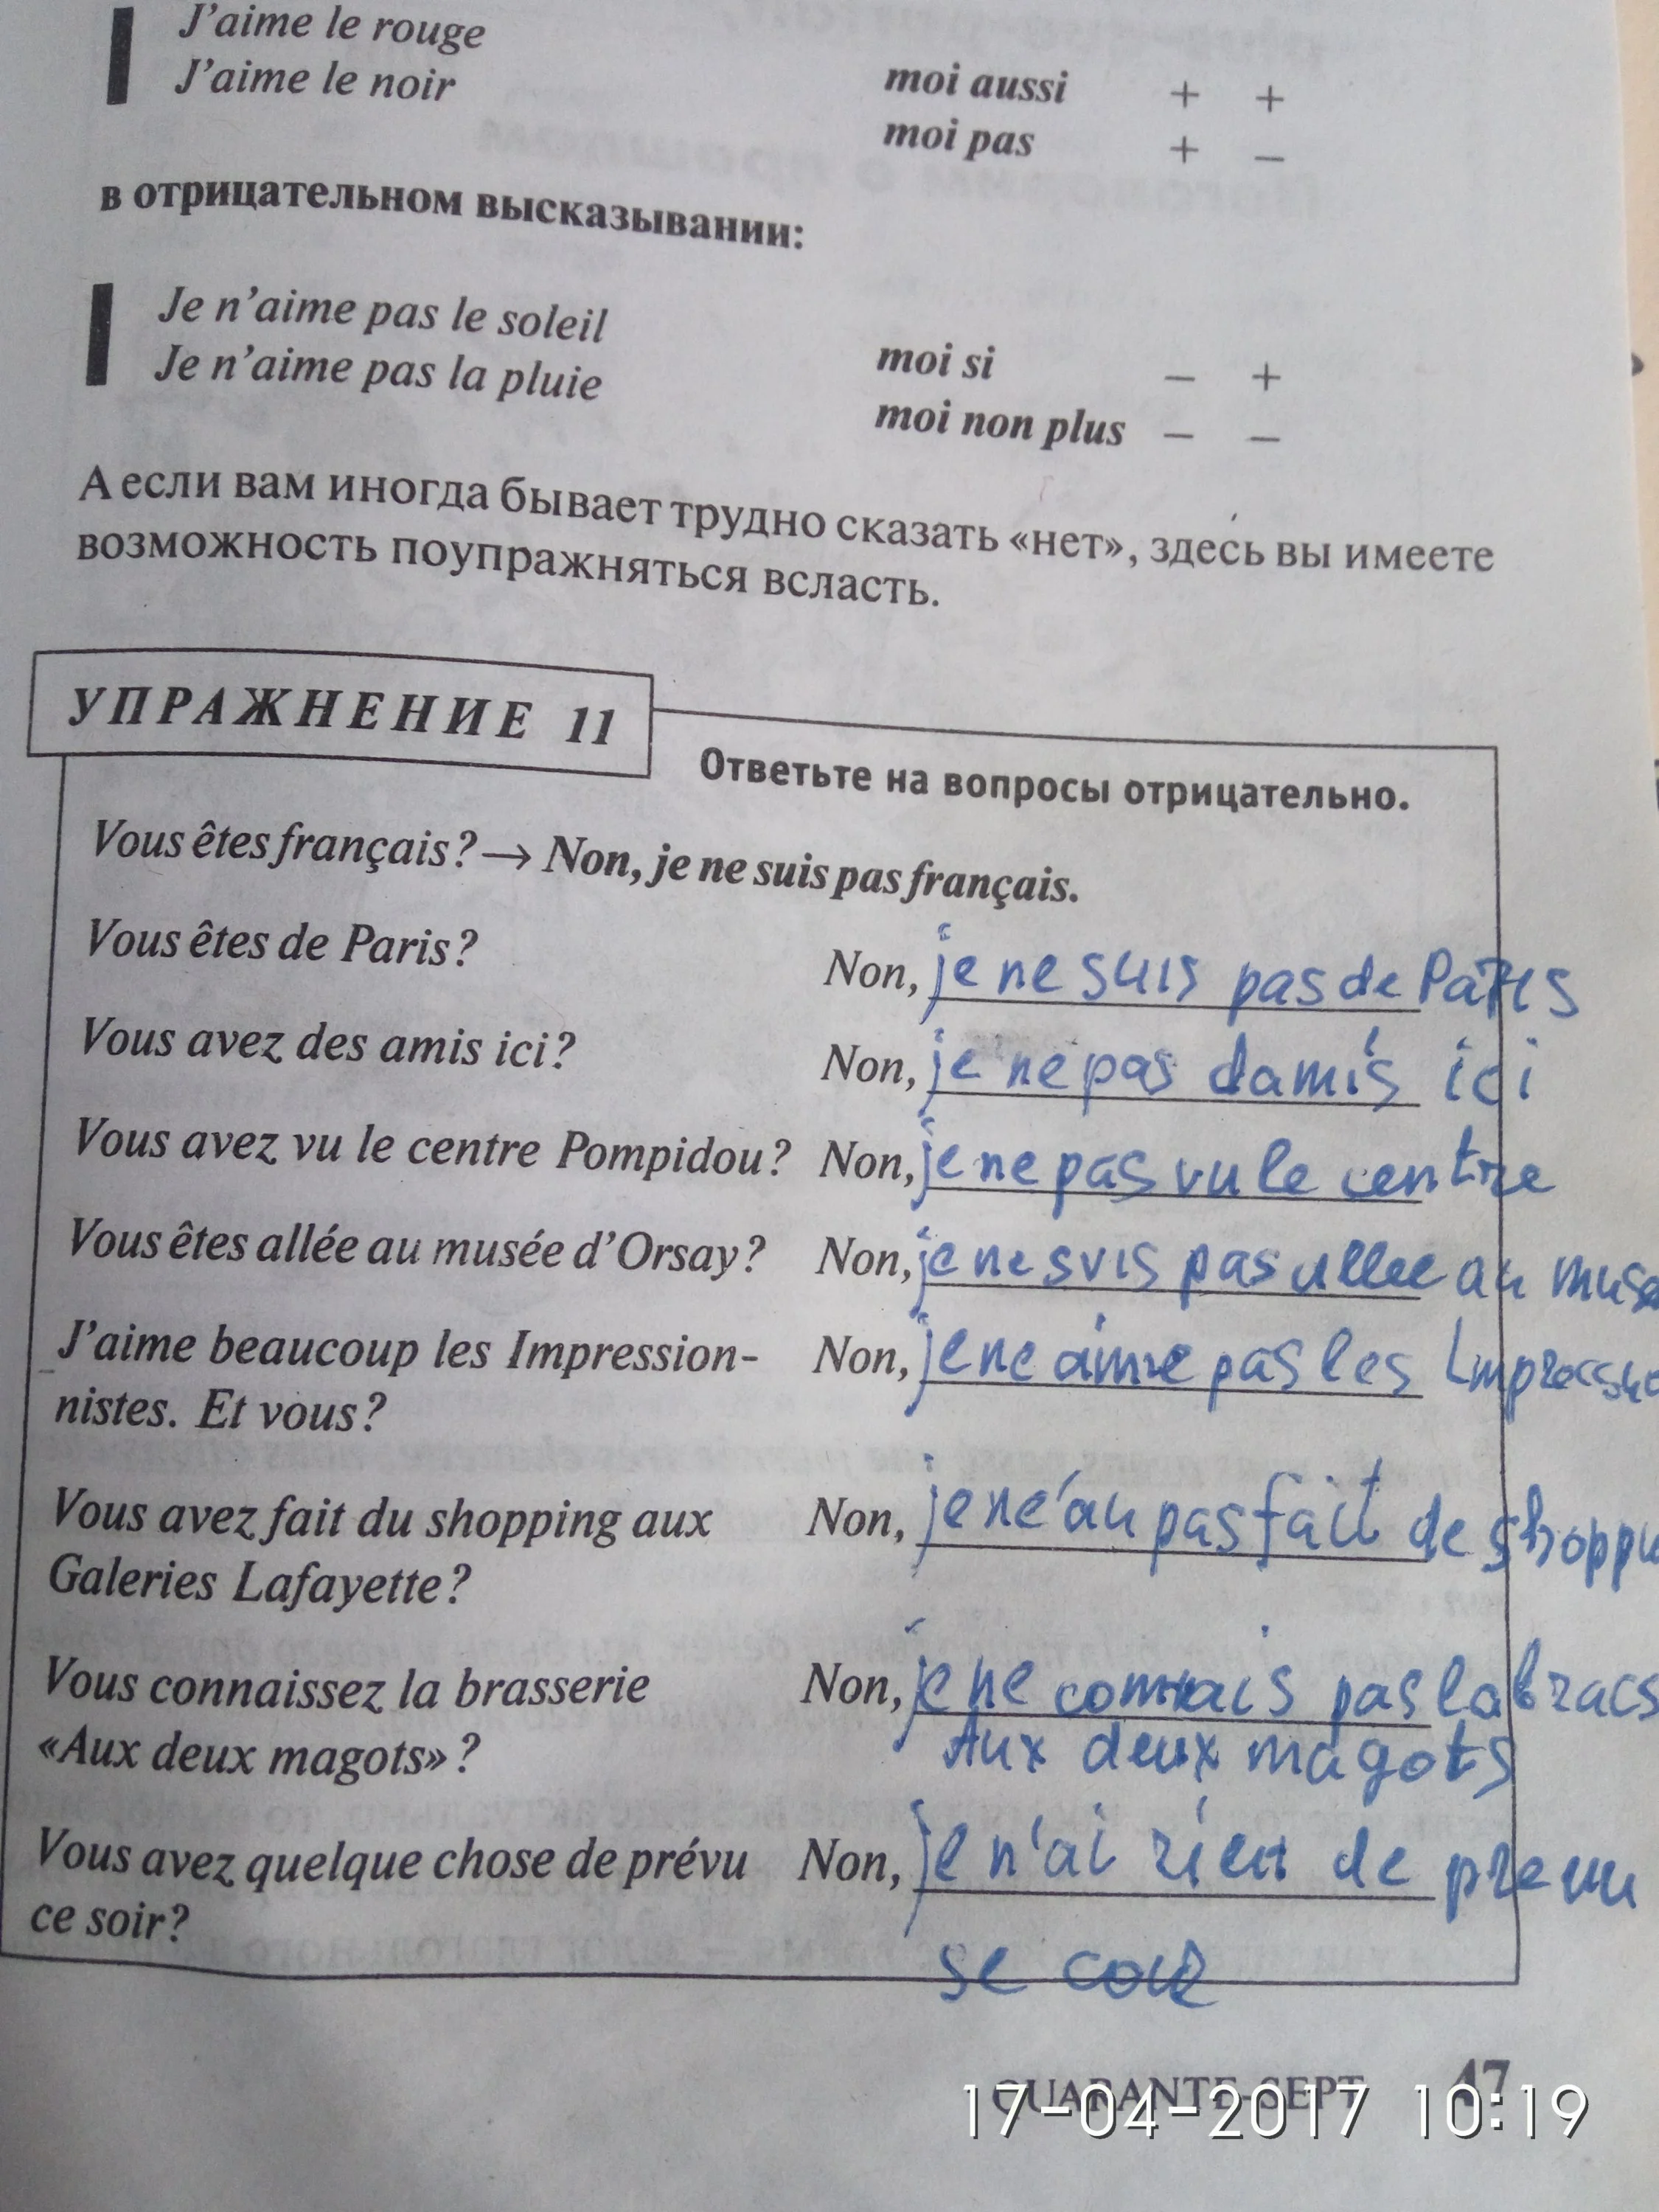 J'aime le rouge
J'aime le noir
moi aussi + +
moi pas + –
в отрицательном высказывании:
Je n'aime pas le soleil
Je n'aime pas la pluie
moi si – +
moi non plus – –
А если вам иногда бывает трудно сказать «нет», здесь вы имеете
возможность поупражняться всласть.
УПРАЖНЕНИЕ 11
Ответьте на вопросы отрицательно.
Vous êtes français? → Non, je ne suis pas français.
Vous êtes de Paris? Non, je ne suis pas de Paris
Vous avez des amis ici? Non, je ne pas damis ici
Vous avez vu le centre Pompidou? Non, je ne pas vu le centre
Vous êtes allée au musée d'Orsay? Non, je ne suis pas allee au
J'aime beaucoup les Impression- Non, je ne aime pas les
nistes. Et vous?
Vous avez fait du shopping aux Non, je pas fait de
Galeries Lafayette?
Vous connaissez la brasserie Non, je ne connais pas la
«Aux deux magots»? Aux deux magots
Vous avez quelque chose de prévu Non, je n'ai rien de
ce soir?
se
QUARANTE-SEPT 47
17-04-2017 10:19